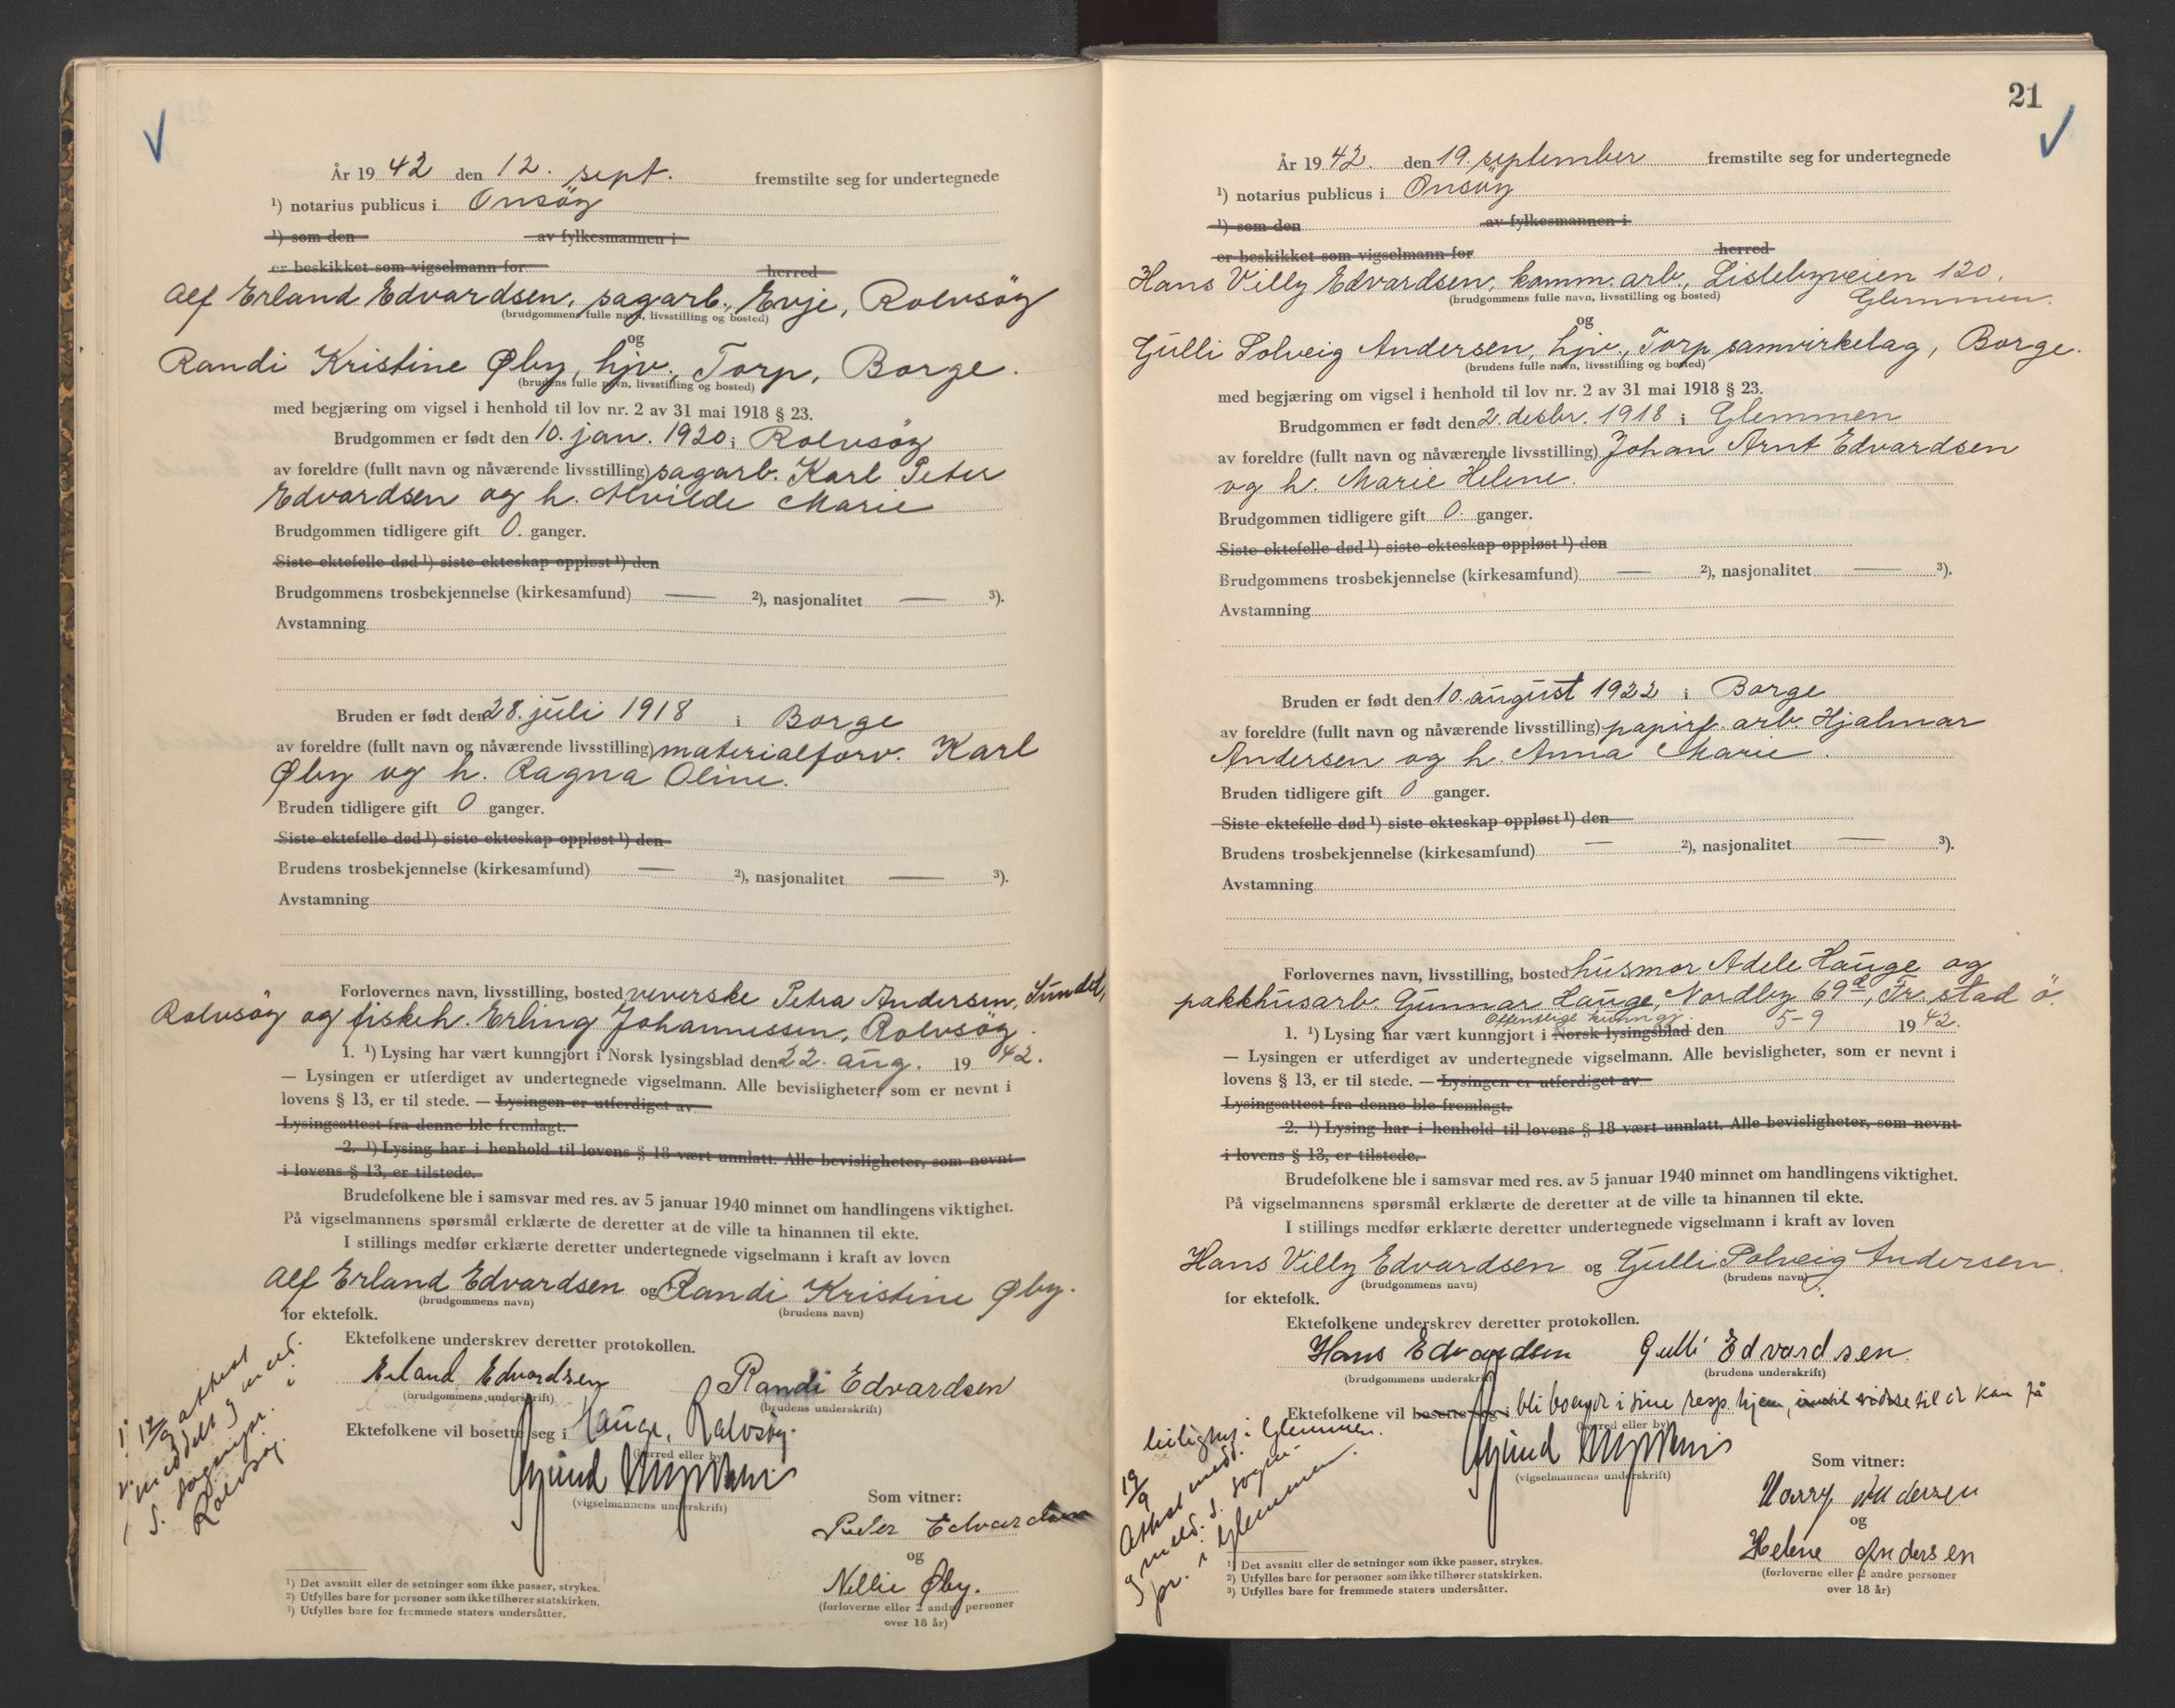 År 1942 den 12. sept. fremstilte seg for undertegnede
¹) notarius publicus i Onsöy
¹) som den av fylkesmannen i
er beskikket som vigselmann for herred
Alf Erland Edvardsen, sagarb., Evje, Rolvsöy
(brudgommens fulle navn, livsstilling og bosted)
og
Randi Kristine Øby, hjv., Torp, Borge.
(brudens fulle navn, livsstilling og bosted)
med begjæring om vigsel i henhold til lov nr. 2 av 31 mai 1918 § 23.
Brudgommen er født den 10. jan. 1920 i Rolvsöy
av foreldre (fullt navn og nåværende livsstilling) sagarb. Karl Peter
Edvardsen og h. Alvilde Marie
Brudgommen tidligere gift 0. ganger.
Siste ektefelle død ¹) siste ekteskap oppløst ¹) den
Brudgommens trosbekjennelse (kirkesamfund) — ²), nasjonalitet — ³).
Avstamning
Bruden er født den 28. juli 1918 i Borge
av foreldre (fullt navn og nåværende livsstilling) materialforv. Karl
Øby og h. Ragna Oline.
Bruden tidligere gift 0 ganger.
Siste ektefelle død ¹) siste ekteskap oppløst ¹) den
Brudens trosbekjennelse (kirkesamfund) — ²), nasjonalitet — ³).
Avstamning
Forlovernes navn, livsstilling, bosted veverske Petra Andersen, Sundet,
Rolvsöy og fiskeh. Erling Johannessen, Rolvsöy.
1. ¹) Lysing har vært kunngjort i Norsk lysingsblad den 22. aug. 1942.
— Lysingen er utferdiget av undertegnede vigselmann. Alle bevisligheter, som er nevnt i
lovens § 13, er til stede. — Lysingen er utferdiget av
Lysingsattest fra denne ble fremlagt.
2. ¹) Lysing har i henhold til lovens § 18 vært unnlatt. Alle bevisligheter, som nevnt
i lovens § 13, er tilstede.
Brudefolkene ble i samsvar med res. av 5 januar 1940 minnet om handlingens viktighet.
På vigselmannens spørsmål erklærte de deretter at de ville ta hinannen til ekte.
I stillings medfør erklærte deretter undertegnede vigselmann i kraft av loven
Alf Erland Edvardsen og Randi Kristine Øby.
(brudgommens navn) (brudens navn)
for ektefolk.
Ektefolkene underskrev deretter protokollen.
Erland Edvardsen Randi Edvardsen
(brudgommens underskrift) (brudens underskrift)
Ektefolkene vil bosette seg i Hauge, Rolvsöy.
(herred eller by)
(vigselmannens underskrift)
12/9 attest
meddelt g meld.
s. sognepr. i
Rolvsøy.
Som vitner:
Peder Edvardsen
og
Nellie Øby.
(forloverne eller 2 andre personer
over 18 år)
¹) Det avsnitt eller de setninger som ikke passer, strykes.
²) Utfylles bare for personer som ikke tilhører statskirken.
³) Utfylles bare for fremmede staters undersåtter.
21
År 1942. den 19. september fremstilte seg for undertegnede
¹) notarius publicus i Onsöy
¹) som den av fylkesmannen i
er beskikket som vigselmann for herred
Hans Villy Edvardsen, komm. arb., Lislebyveien 120,
(brudgommens fulle navn, livsstilling og bosted) Glemmen.
og
Gulli Solveig Andersen, hjv., Torp samvirkelag, Borge.
(brudens fulle navn, livsstilling og bosted)
med begjæring om vigsel i henhold til lov nr. 2 av 31 mai 1918 § 23.
Brudgommen er født den 2. desbr. 1918 i Glemmen
av foreldre (fullt navn og nåværende livsstilling) Johan Arnt Edvardsen
og h. Marie Helene.
Brudgommen tidligere gift 0. ganger.
Siste ektefelle død ¹) siste ekteskap oppløst ¹) den
Brudgommens trosbekjennelse (kirkesamfund) — ²), nasjonalitet — ³).
Avstamning
Bruden er født den 10. august 1922 i Borge
av foreldre (fullt navn og nåværende livsstilling) papirf. arb. Hjalmar
Andersen og h. Anna Marie.
Bruden tidligere gift 0 ganger.
Siste ektefelle død ¹) siste ekteskap oppløst ¹) den
Brudens trosbekjennelse (kirkesamfund) — ²), nasjonalitet — ³).
Avstamning
Forlovernes navn, livsstilling, bosted husmor Adele Hauge og
pakkhusarb. Gunnar Hauge, Nordby 69d, Fr.stad ö.
Offentlige kunngj.
1. ¹) Lysing har vært kunngjort i Norsk lysingsblad den 5-9 1942.
— Lysingen er utferdiget av undertegnede vigselmann. Alle bevisligheter, som er nevnt i
lovens § 13, er til stede. — Lysingen er utferdiget av
Lysingsattest fra denne ble fremlagt.
2. ¹) Lysing har i henhold til lovens § 18 vært unnlatt. Alle bevisligheter, som nevnt
i lovens § 13, er tilstede.
Brudefolkene ble i samsvar med res. av 5 januar 1940 minnet om handlingens viktighet.
På vigselmannens spørsmål erklærte de deretter at de ville ta hinannen til ekte.
I stillings medfør erklærte deretter undertegnede vigselmann i kraft av loven
Hans Villy Edvardsen og Gulli Solveig Andersen.
(brudgommens navn) (brudens navn)
for ektefolk.
Ektefolkene underskrev deretter protokollen.
Hans Edvardsen Gulli Edvardsen.
(brudgommens underskrift) (brudens underskrift)
Ektefolkene vil bosette seg i bli boende i sine resp. hjem, inntil videre til de kan få
leilighet i Glemmen.
(herred eller by)
(vigselmannens underskrift)
19/9
Attest medd.
g meld. s. sogne-
pr. i Glemmen.
Som vitner:
Harry Andersen
og
Helene Andersen
(forloverne eller 2 andre personer
over 18 år)
¹) Det avsnitt eller de setninger som ikke passer, strykes.
²) Utfylles bare for personer som ikke tilhører statskirken.
³) Utfylles bare for fremmede staters undersåtter.